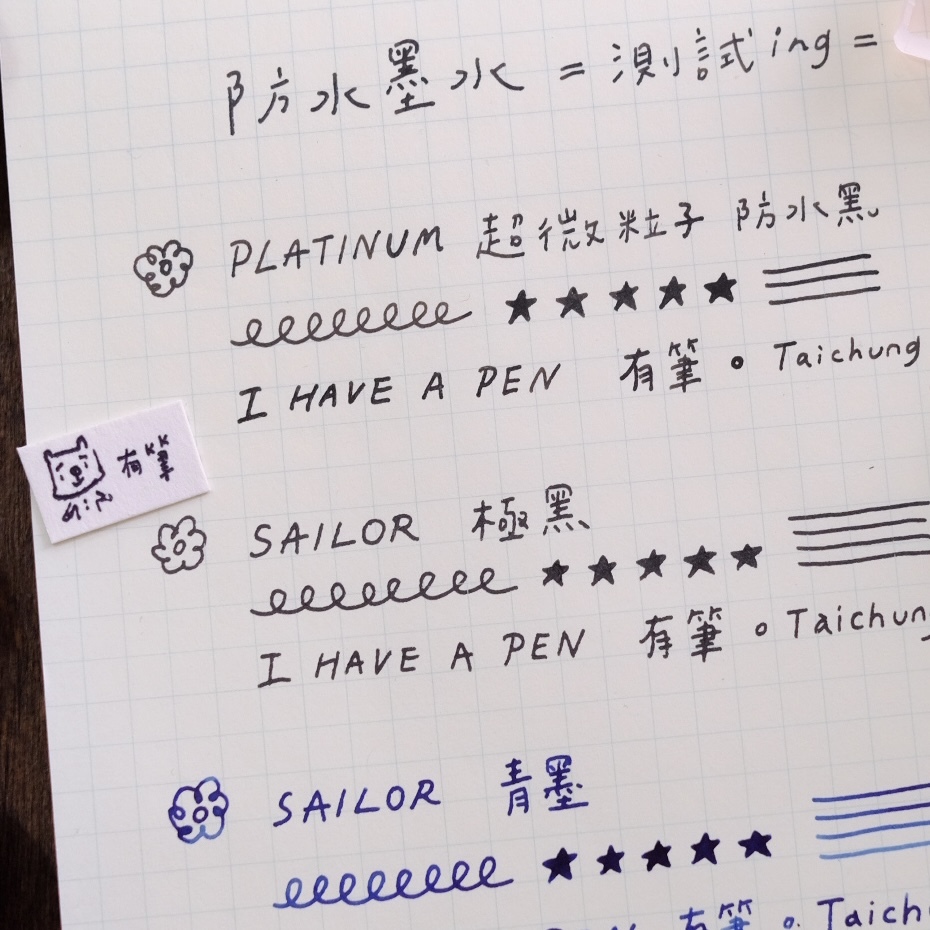 防水墨水 = 測試ing =
PLATINUM 超微粒子 防水黑
I HAVE A PEN 有筆。Taichung
有筆
SAILOR 極黑
I HAVE A PEN 有筆。Taichun
SAILOR 青墨
有筆。Taich